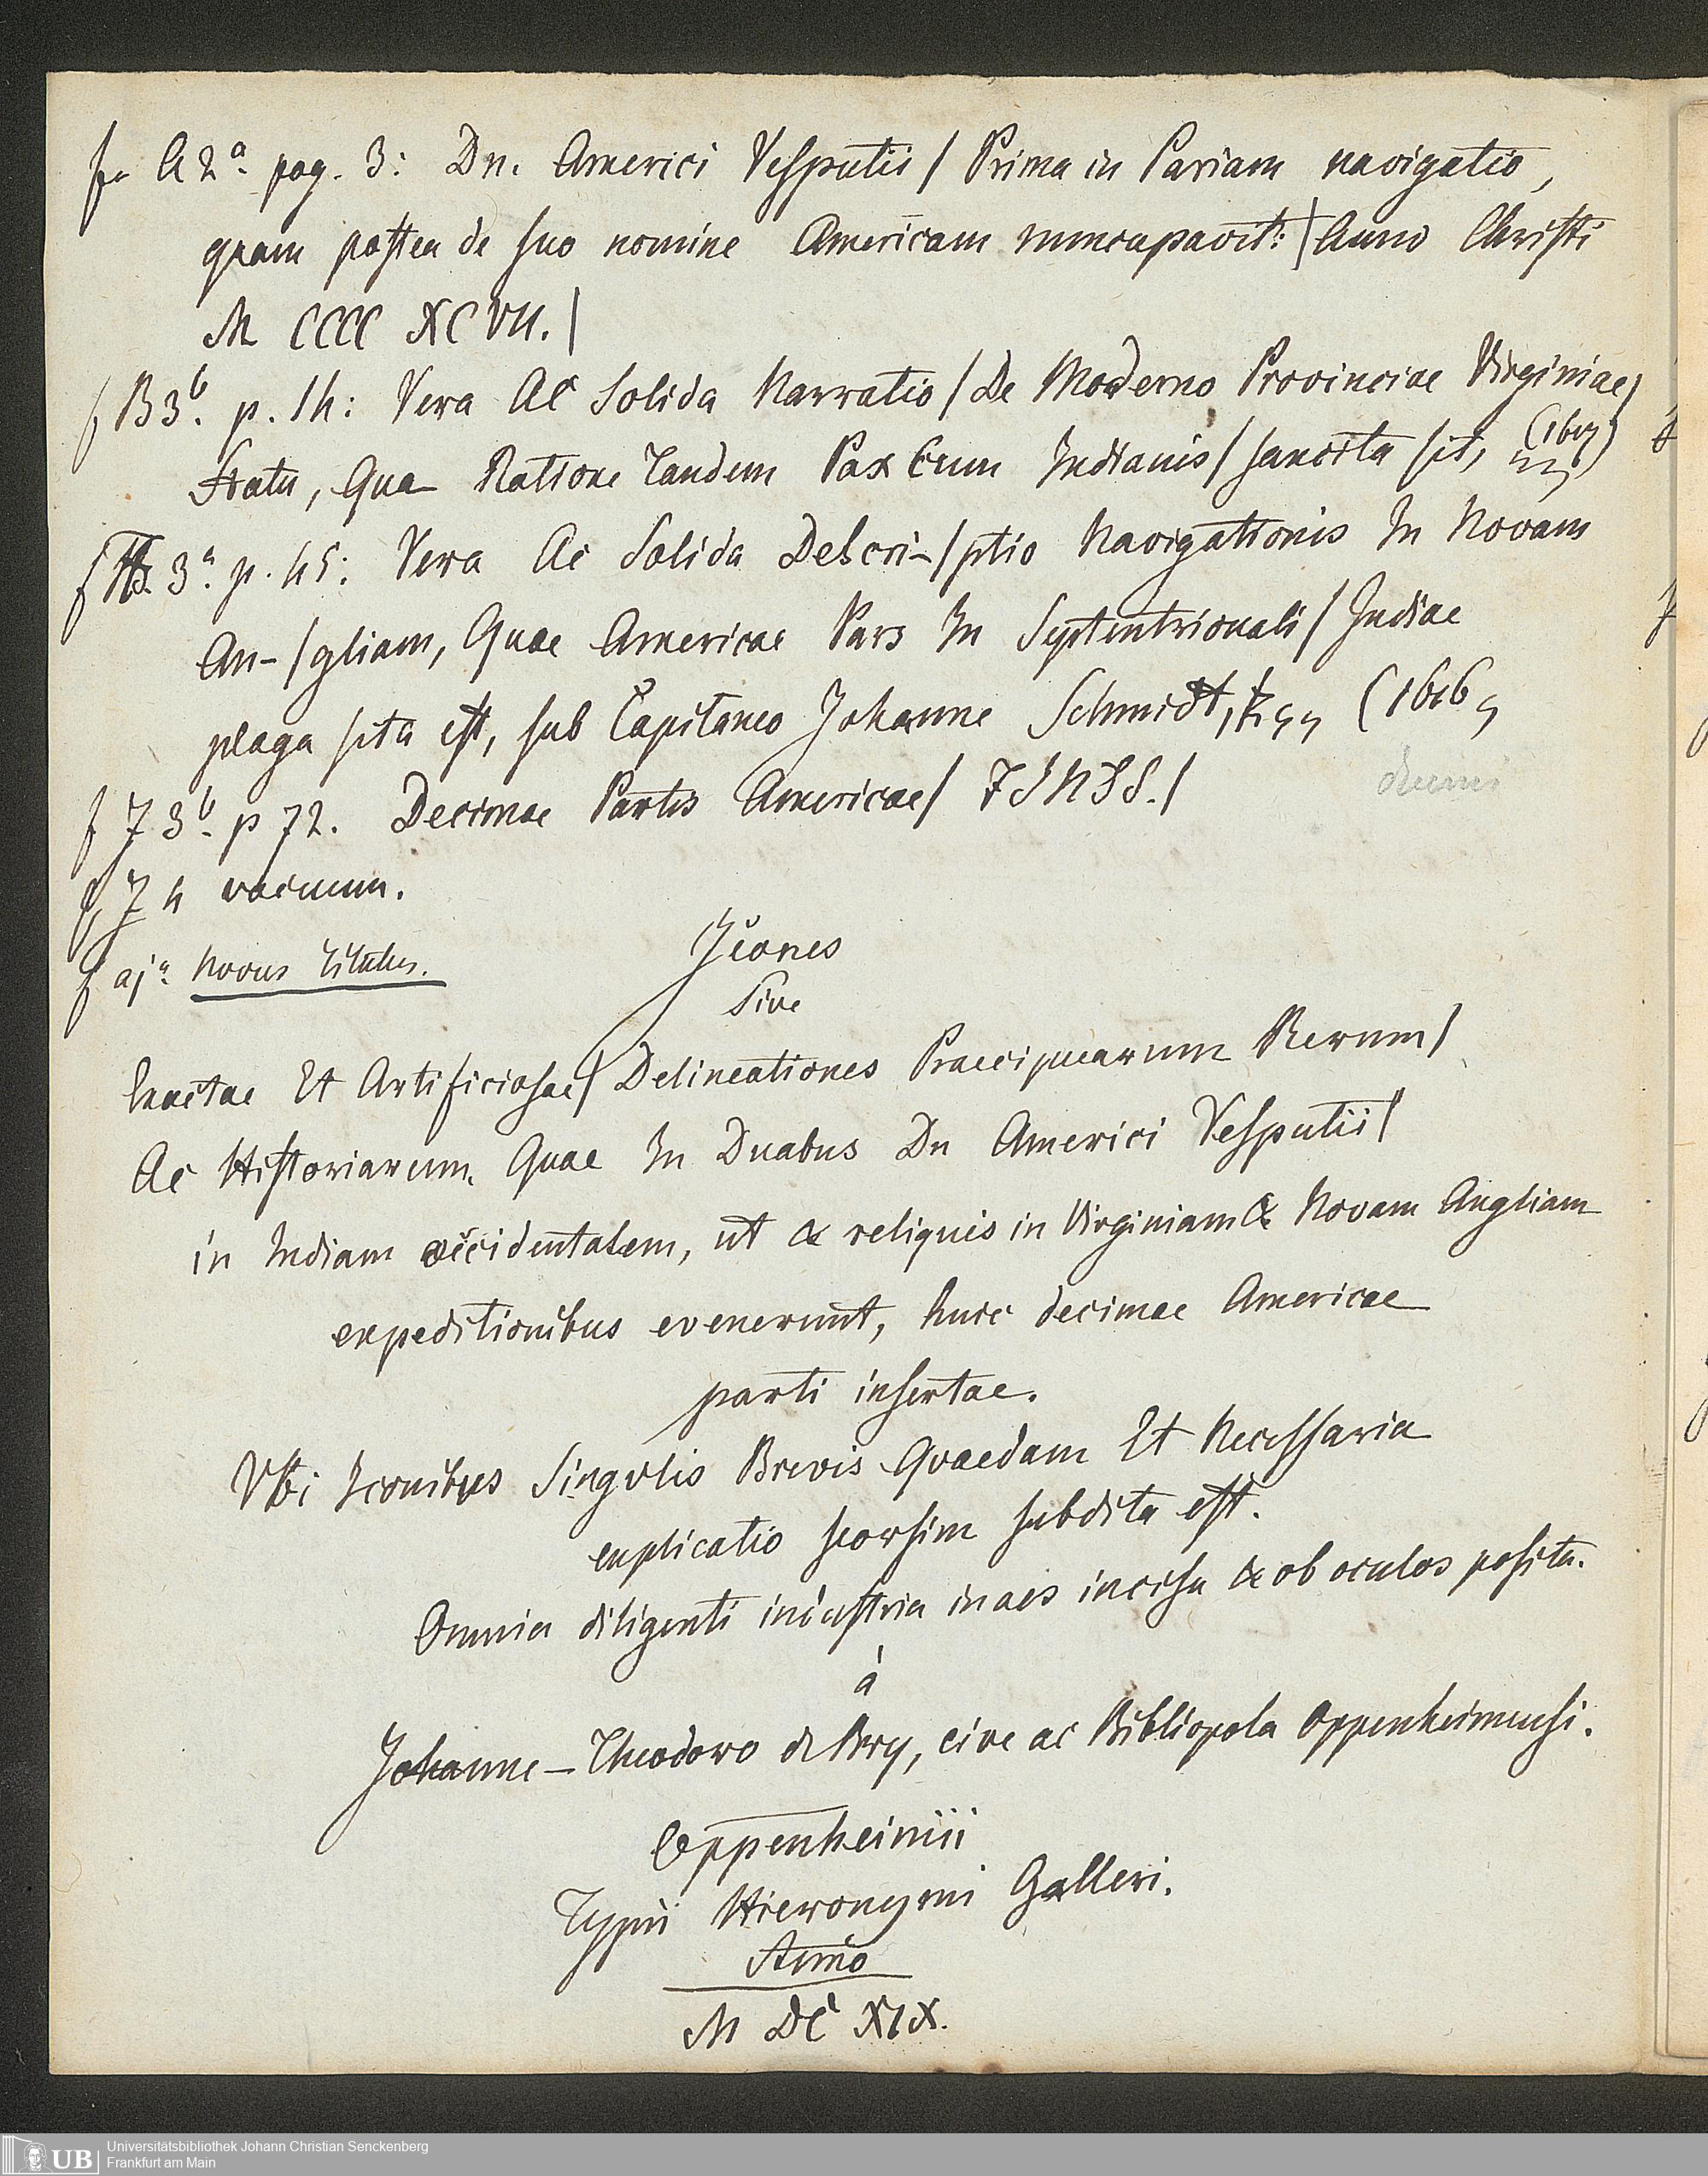 f. A 2ª. pag. 3: Dn. Americi Vesputii / Prima in Pariam navigatio,
quam postea de suo nomine Americam nuncupavit: / Anno Christi
M CCCC XCVII. /
f B 3ᵇ. p. 14: Vera Ac Solida Narratio / De Moderno Provinciae Virginiae /
Statu, Qua Ratione Tandem Pax Cum Indianis / sancita sit,
f 3ª. p. 45: Vera Ac Solida Descri- / ptio Navigationis In Novam
An- / gliam, Quae Americae Pars In Septentrionali / Indiae
plaga sita est, sub Capitaneo Johanne Schmidt, (1616
f J 3ᵇ. p 72. Decimae Partis Americae / FINIS. /
f J 4 vacuum.
f ajª. Novus Titulus.
Icones
Sive
Exactae Et Artificiosae / Delineationes Praecipuarum Rerum /
Ac Historiarum, Quae In Duabus Dn Americi Vesputii /
in Indiam occidentalem, ut & reliquis in Virginiam & Novam Angliam
expeditionibus evenerunt, huic decimae Americae
parti insertae.
Vbi Iconibus Singvlis Brevis Qvaedam Et Necessaria
explicatio seorsim subdita est.
Omnia diligenti industria in aes incisa & ob oculos posita.
à
Johanne-Theodoro de Bry, cive ac Bibliopola Oppenheimensi.
Oppenheimii
Typis Hieronymi Galleri.
Anno
M DC XIX.
UB
Universitätsbibliothek Johann Christian Senckenberg
Frankfurt am Main